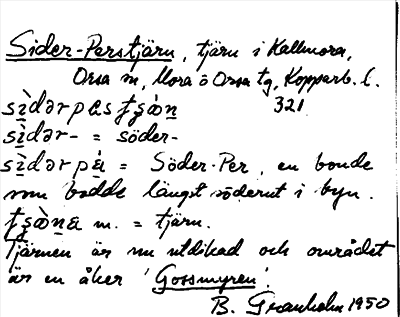 Sider-Perstjärn, tjärn i Kallmora,
Orsa sn, Mora o Orsa tg, Kopparb. l.
321
sìdər- = söder-
= Söder-Per, en bonde
som bodde längst söderut i byn.
m. = tjärn.
Tjärnen är nu utdikad och området
är en åker 'Gossmyren'.
B. Granholm 1950